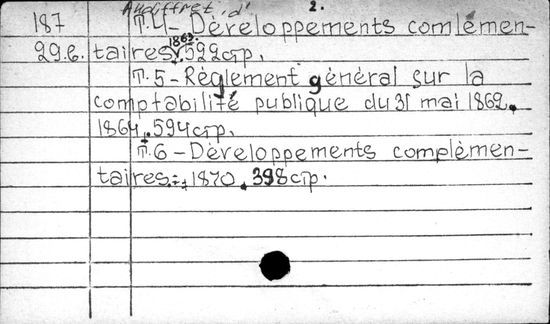 Audiffret, d' 2.
187 Т.4 - Développements comlémen-
29.6. taires. 1863. 522стр.
Т.5 - Règlement général sur la
comptabilité publique du 31 mai 1862.
1864. 594стр.
Т.6 - Développements complémen-
taires. - 1870. 398стр.